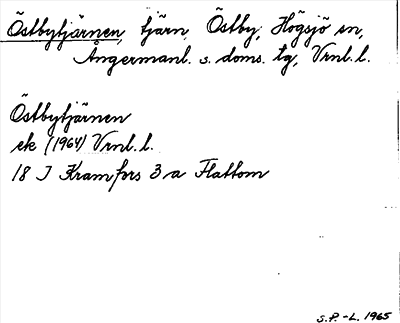 Östbytjärnen, tjärn, Östby, Högsjö sn,
Ångermanl. s. doms. tg, Vrnl. l.
Östbytjärnen
ek (1964) Vrnl. l.
18 I Kramfors 3 a Flattom
S.P.-L. 1965